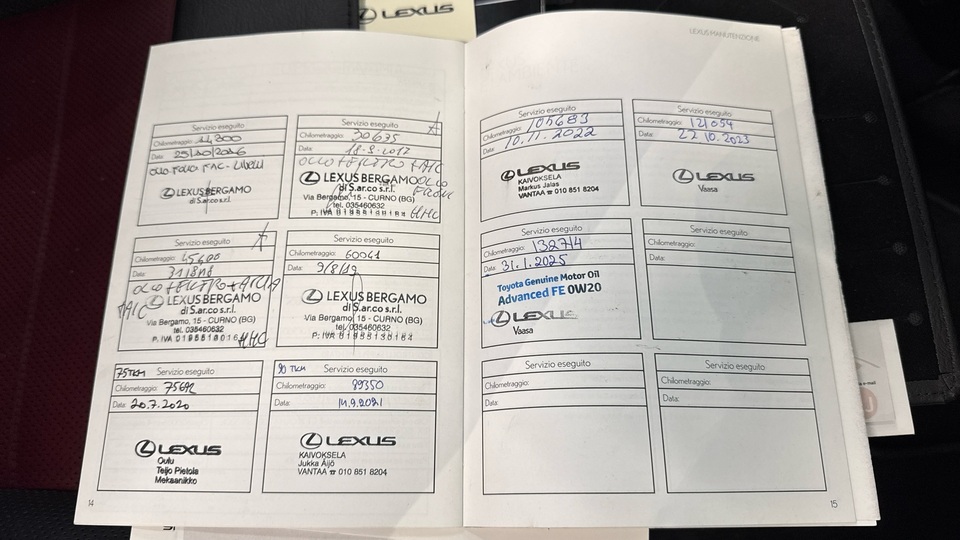 LEXUS
LEXUS MANUTENZIONE
Servizio eseguito
Chilometraggio: 14300
Data: 25/10/2016
OLIO
LEXUS BERGAMO
di S.ar.co s.r.l.
Servizio eseguito
Chilometraggio: 30675
Data: 18-9-2017
OLIO + FILTRO +
LEXUS BERGAMO
di S.ar.co s.r.l.
Via Bergamo, 15 - CURNO (BG)
tel. 035460632
P. IVA
HHC
Servizio eseguito
Chilometraggio: 45600
Data:
OLIO + FILTRO + ARIA
LEXUS BERGAMO
di S.ar.co s.r.l.
Via Bergamo, 15 - CURNO (BG)
tel. 035460632
P. IVA
HHC
Servizio eseguito
Chilometraggio: 60041
Data: 9/8/19
LEXUS BERGAMO
di S.ar.co s.r.l.
Via Bergamo, 15 - CURNO (BG)
tel. 035460632
P. IVA
75TKM Servizio eseguito
Chilometraggio:
Data: 20.7.2020
LEXUS
Oulu
Teijo Pietola
Mekaanikko
90 TKM Servizio eseguito
Chilometraggio: 89350
Data: 14.9.2021
LEXUS
KAIVOKSELA
Jukka Äijö
VANTAA ☎ 010 851 8204
14
Servizio eseguito
Chilometraggio: 105683
Data: 10.11.2022
LEXUS
KAIVOKSELA
Markus Jalas
VANTAA ☎ 010 851 8204
Servizio eseguito
Chilometraggio: 121054
Data: 27.10.2023
LEXUS
Vaasa
Servizio eseguito
Chilometraggio: 132714
Data: 31.1.2025
Toyota Genuine Motor Oil
Advanced FE 0W20
LEXUS
Vaasa
Servizio eseguito
Chilometraggio:
Data:
Servizio eseguito
Chilometraggio:
Data:
Servizio eseguito
Chilometraggio:
Data:
15
e-mail